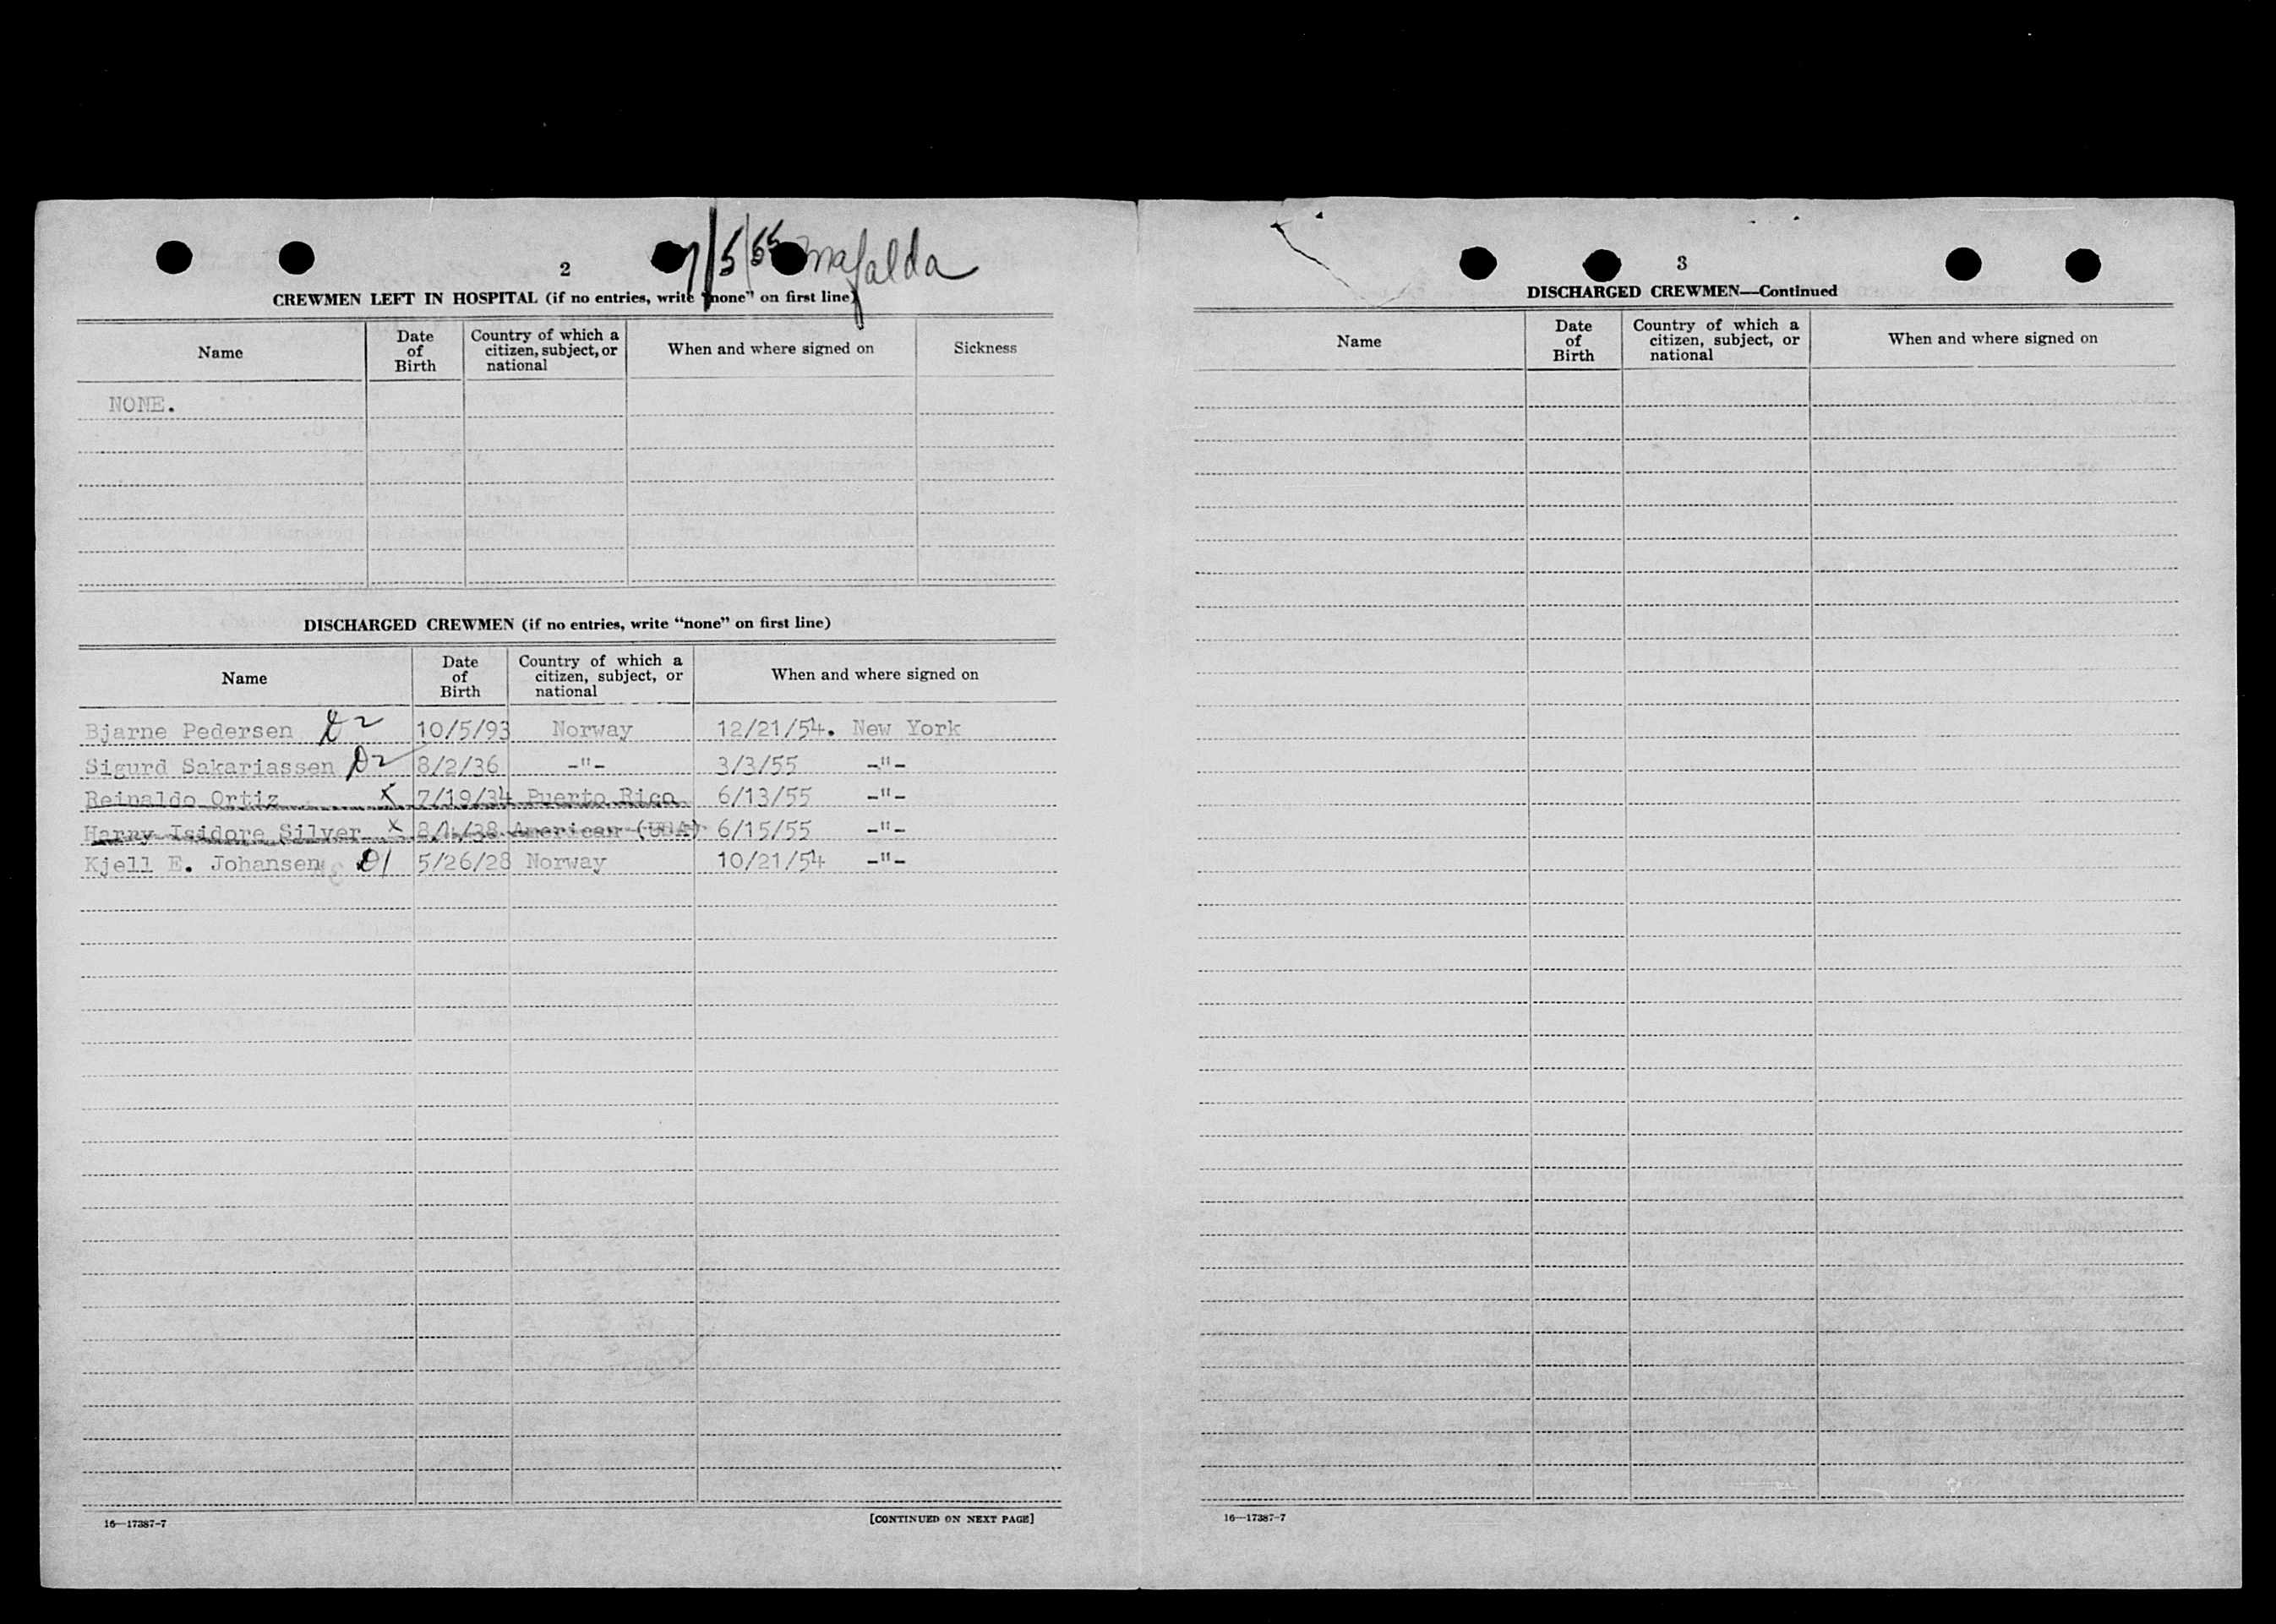 2
7/5/55 Mafalda
CREWMEN LEFT IN HOSPITAL (if no entries, write "none" on first line)
Name
Date of Birth
Country of which a citizen, subject, or national
When and where signed on
Sickness
NONE.
DISCHARGED CREWMEN (if no entries, write "none" on first line)
Name
Date of Birth
Country of which a citizen, subject, or national
When and where signed on
Bjarne Pedersen D2 10/5/93 Norway 12/21/54. New York
Sigurd Sakariassen D2 8/2/36 -"- 3/3/55 -"-
Reinaldo Ortiz X 7/19/34 Puerto Rico 6/13/55 -"-
Harry Isidore Silver X American (USA) 6/15/55 -"-
Kjell E. Johansen D1 5/26/28 Norway 10/21/54 -"-
16—17387-7
[CONTINUED ON NEXT PAGE]
3
DISCHARGED CREWMEN—Continued
Name
Date of Birth
Country of which a citizen, subject, or national
When and where signed on
16—17387-7